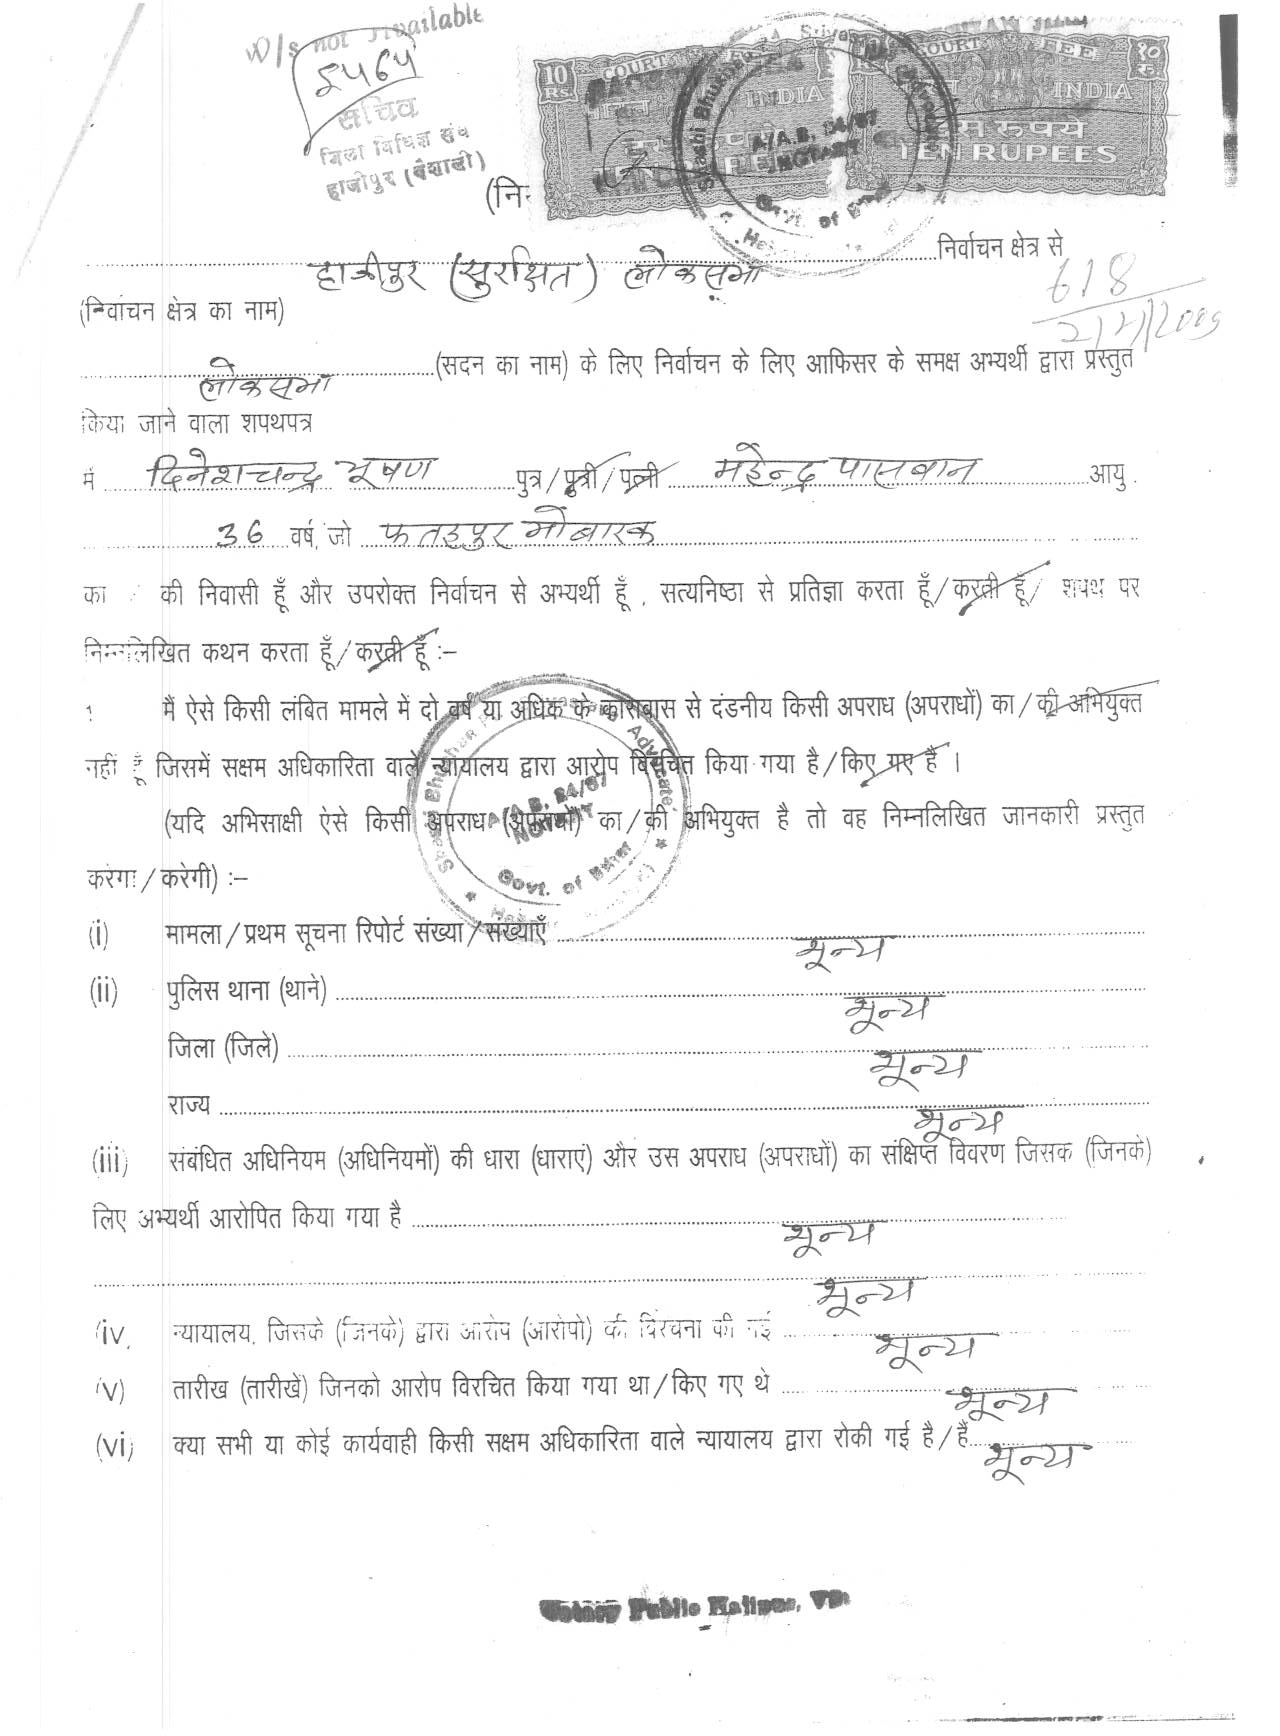 W/s not available
5464
सचिव
जिला विधिज्ञ संघ
हाजीपुर (वैशाली)
10 Rs. COURT FEE INDIA
COURT FEE १० रु. INDIA
दस रुपये
TEN RUPEES
Shashi Bhushan Srivastava Advocate
A/A.B. 84/87
NOTARY
Govt. of Bihar
(नि
हाजीपुर (सुरक्षित) लोकसभा निर्वाचन क्षेत्र से
618
(निर्वाचन क्षेत्र का नाम)
लोकसभा (सदन का नाम) के लिए निर्वाचन के लिए आफिसर के समक्ष अभ्यर्थी द्वारा प्रस्तुत
किया जाने वाला शपथपत्र
मैं दिनेशचन्द्र भूषण पुत्र/पुत्री/पत्नी महेन्द्र पासवान आयु
36 वर्ष, जो फतहपुर मोबारक
का की निवासी हूँ और उपरोक्त निर्वाचन से अभ्यर्थी हूँ, सत्यनिष्ठा से प्रतिज्ञा करता हूँ/करती हूँ/ शपथ पर
निम्नलिखित कथन करता हूँ/करती हूँ :–
1 मैं ऐसे किसी लंबित मामले में दो वर्ष या अधिक के कारावास से दंडनीय किसी अपराध (अपराधों) का/की अभियुक्त
नहीं हूँ जिसमें सक्षम अधिकारिता वाले न्यायालय द्वारा आरोप विरचित किया गया है/किए गए हैं ।
(यदि अभिसाक्षी ऐसे किसी अपराध (अपराधों) का/की अभियुक्त है तो वह निम्नलिखित जानकारी प्रस्तुत
करेगा/करेगी) :–
(i) मामला/प्रथम सूचना रिपोर्ट संख्या/संख्याएँ शून्य
(ii) पुलिस थाना (थाने) शून्य
जिला (जिले) शून्य
राज्य शून्य
(iii) संबंधित अधिनियम (अधिनियमों) की धारा (धाराएं) और उस अपराध (अपराधों) का संक्षिप्त विवरण जिसक (जिनके)
लिए अभ्यर्थी आरोपित किया गया है शून्य
शून्य
(iv) न्यायालय, जिसके (जिनके) द्वारा आरोप (आरोपो) की विरचना की गई शून्य
(v) तारीख (तारीखें) जिनको आरोप विरचित किया गया था/किए गए थे शून्य
(vi) क्या सभी या कोई कार्यवाही किसी सक्षम अधिकारिता वाले न्यायालय द्वारा रोकी गई है/हैं शून्य
Notary Public Hajipur,